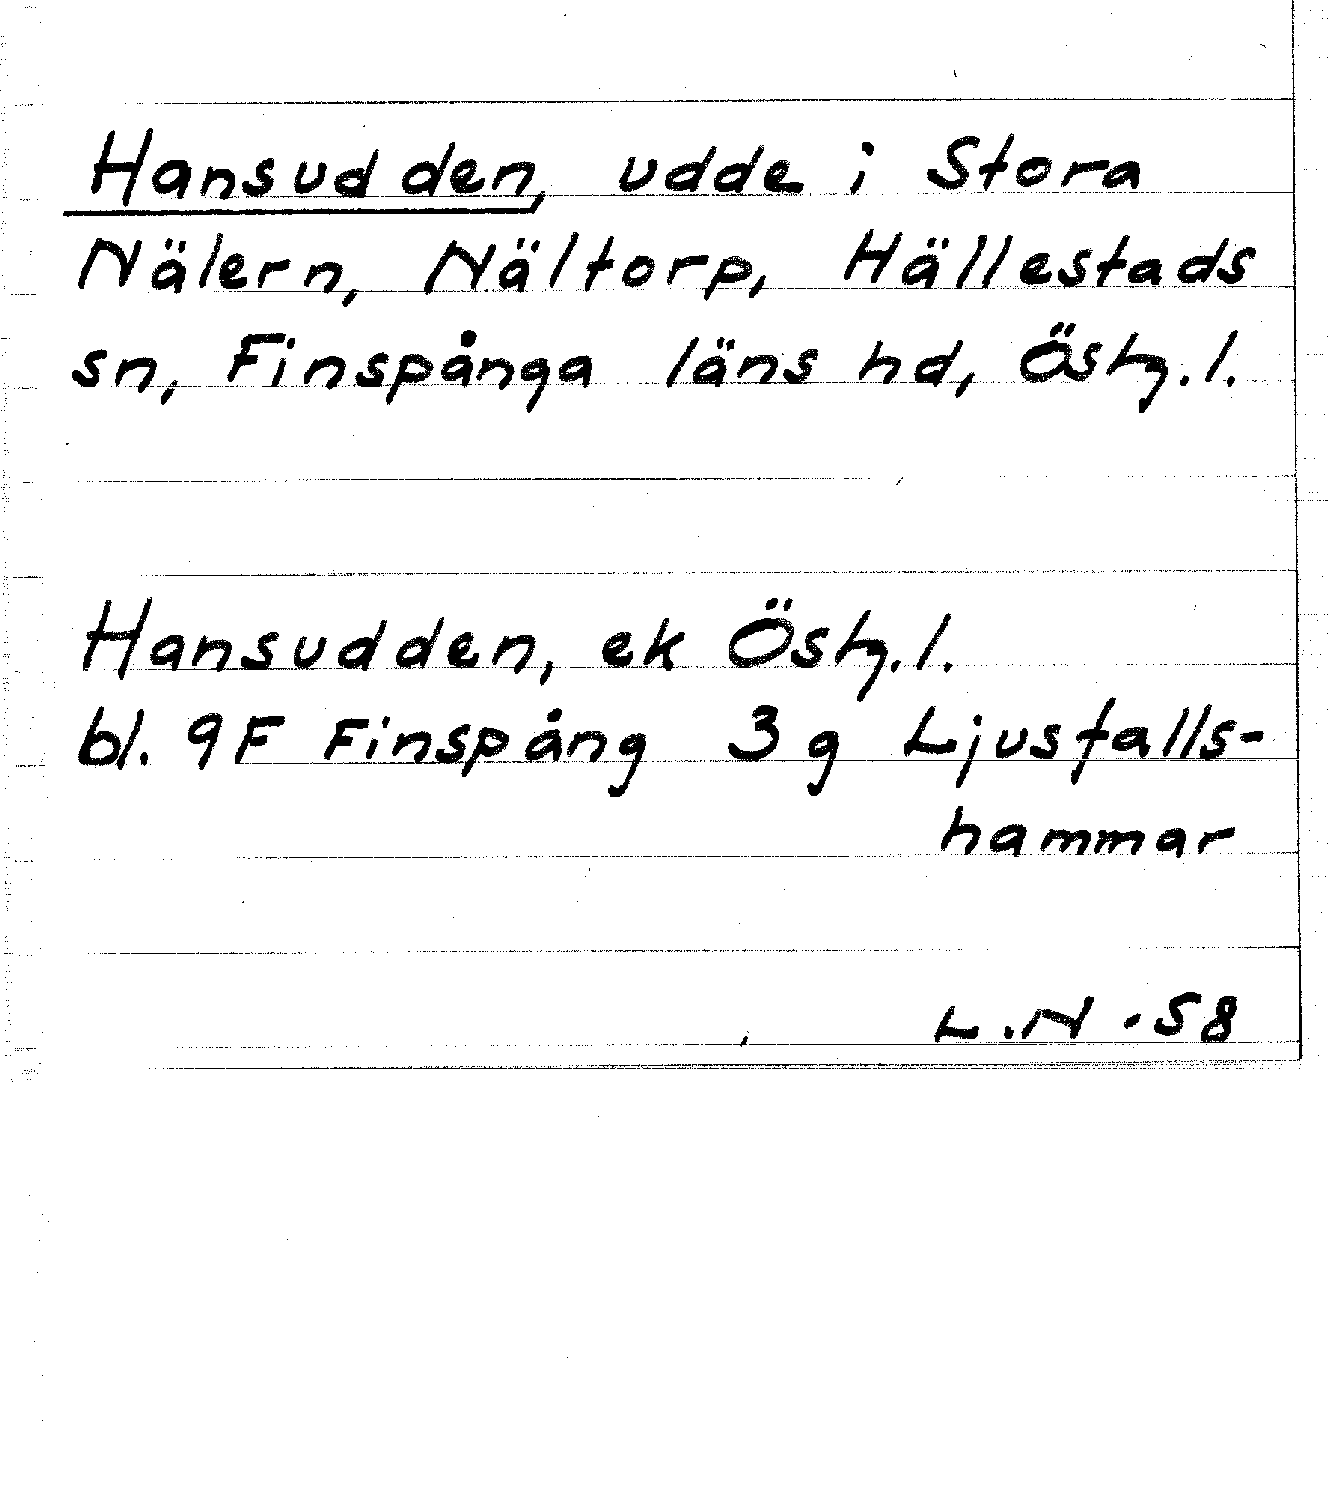 Hansudden, udde i Stora
Nälern, Nältorp, Hällestads
sn, Finspånga läns hd, Östg.l.
Hansudden, ek Östg.l.
bl. 9F Finspång 3g Ljusfalls-
hammar
L.N -58